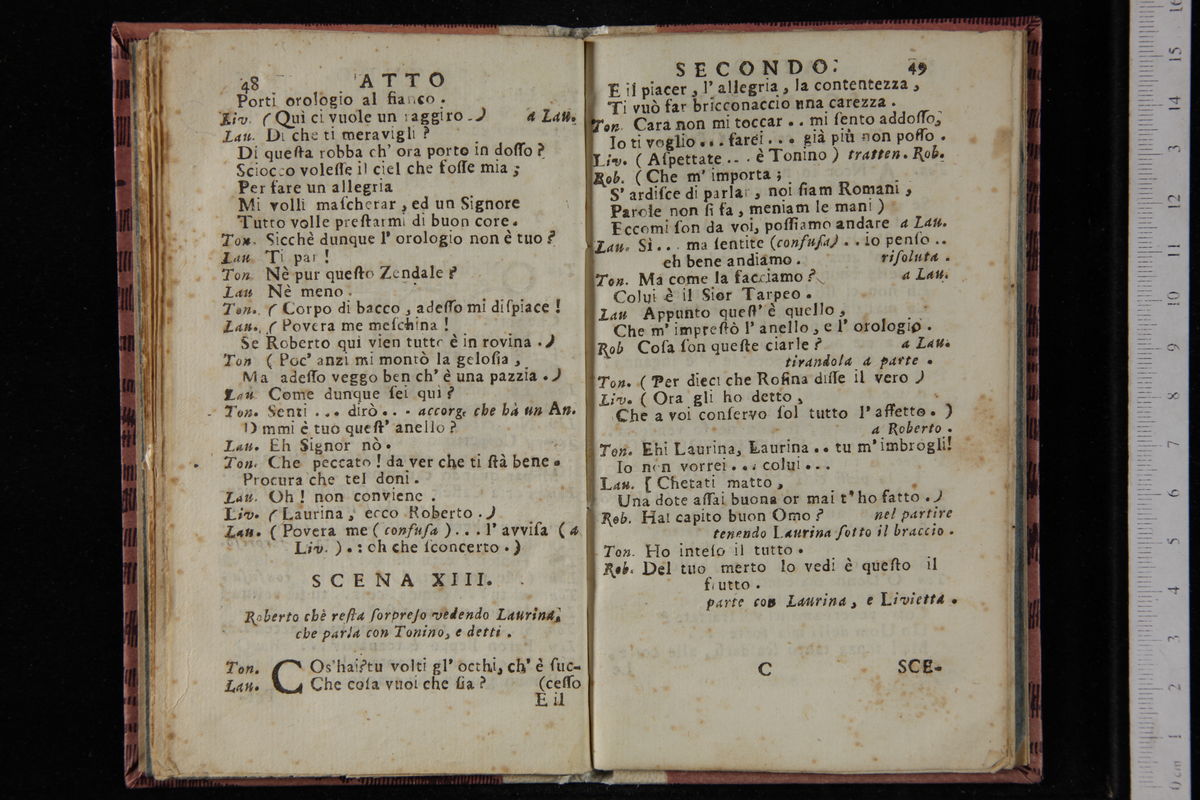 48 ATTO
Porti orologio al fianco.
Liv. (Quì ci vuole un raggiro.) a Lau.
Lau. Di che ti meravigli?
Di questa robba ch' ora porto in dosso?
Sciocco volesse il ciel che fosse mia;
Per fare un allegria
Mi volli mascherar, ed un Signore
Tutto volle prestarmi di buon core.
Ton. Sicchè dunque l' orologio non è tuo?
Lau Ti par!
Ton. Nè pur questo Zendale?
Lau Nè meno.
Ton. (Corpo di bacco, adesso mi dispiace!
Lau. (Povera me meschina!
Se Roberto qui vien tutto è in rovina.)
Ton (Poc' anzi mi montò la gelosia,
Ma adesso veggo ben ch' è una pazzia.)
Lau Come dunque sei quì?
Ton. Senti ... dirò... accorg. che hà un An.
Dimmi è tuo quest' anello?
Lau. Eh Signor nò.
Ton. Che peccato! da ver che ti stà bene.
Procura che tel doni.
Lau. Oh! non conviene.
Liv. (Laurina, ecco Roberto.)
Lau. (Povera me (confusa)... l' avvisa (a
Liv.).: oh che sconcerto.)
SCENA XIII.
Roberto chè resta sorpreso vedendo Laurina,
che parla con Tonino, e detti.
Ton. COs'hai?tu volti gl' occhi, ch' è suc-
Lau. Che cosa vuoi che sia? (cesso
E il
SECONDO. 49
E il piacer, l' allegria, la contentezza,
Ti vuò far bricconaccio una carezza.
Ton. Cara non mi toccar.. mi sento addosso,
Io ti voglio... farei... già più non posso.
Liv. (Aspettate... è Tonino) tratten. Rob.
Rob. (Che m' importa;
S' ardisce di parlar, noi siam Romani,
Parole non si fa, meniam le mani)
Eccomi son da voi, possiamo andare a Lau.
Lau. Sì... ma sentite (confusa).. io penso..
eh bene andiamo. risoluta.
Ton. Ma come la facciamo? a Lau.
Colui è il Sior Tarpeo.
Lau Appunto quest' è quello,
Che m' imprestò l' anello, e l' orologio.
Rob Cosa son queste ciarle? a Lau.
tirandola a parte.
Ton. (Per dieci che Rosina disse il vero)
Liv. (Ora gli ho detto,
Che a voi conservo sol tutto l' affetto.)
a Roberto.
Ton. Ehi Laurina, Laurina.. tu m' imbrogli!
Io non vorrei... colui...
Lau. [Chetati matto,
Una dote assai buona or mai t' ho fatto.)
Rob. Hai capito buon Omo? nel partire
tenendo Laurina sotto il braccio.
Ton. Ho inteso il tutto.
Rob. Del tuo merto lo vedi è questo il
frutto.
parte con Laurina, e Livietta.
C SCE-